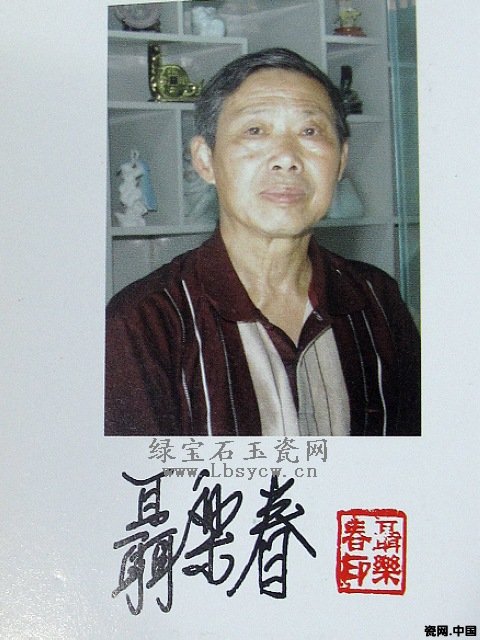 绿宝石玉瓷网
www.Lbsycw.cn
聶樂春
聶樂春印
瓷网.中国